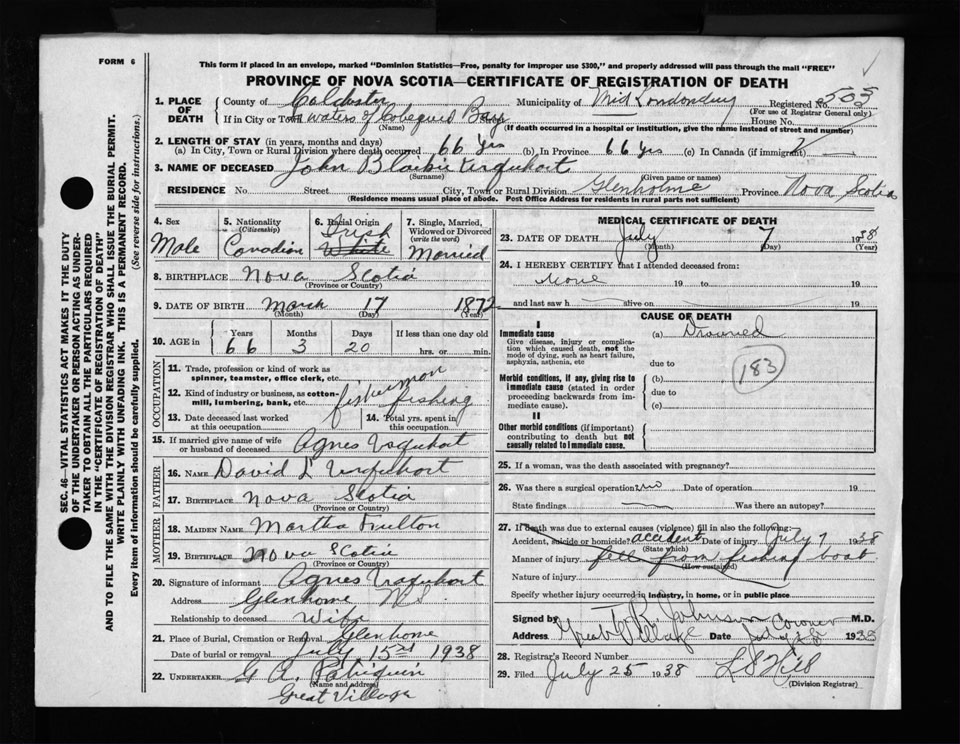 FORM 6
This form if placed in an envelope, marked "Dominion Statistics—Free, penalty for improper use $300," and properly addressed will pass through the mail "FREE"
PROVINCE OF NOVA SCOTIA—CERTIFICATE OF REGISTRATION OF DEATH
SEC. 46—VITAL STATISTICS ACT MAKES IT THE DUTY
OF THE UNDERTAKER OR PERSON ACTING AS UNDER-
TAKER TO OBTAIN ALL THE PARTICULARS REQUIRED
IN THE "CERTIFICATE OF REGISTRATION OF DEATH"
AND TO FILE THE SAME WITH THE DIVISION REGISTRAR WHO SHALL ISSUE THE BURIAL PERMIT.
WRITE PLAINLY WITH UNFADING INK. THIS IS A PERMANENT RECORD.
Every item of information should be carefully supplied. (See reverse side for instructions.)
1. PLACE OF DEATH County of Colchester Municipality of Mid Londonderry Registered No. 503
(For use of Registrar General only)
If in City or Town waters of Cobequid Bay House No.
(Name) (If death occurred in a hospital or institution, give the name instead of street and number)
2. LENGTH OF STAY (in years, months and days)
(a) In City, Town or Rural Division where death occurred 66 Yrs (b) In Province 66 Yrs (c) In Canada (if immigrant)
3. NAME OF DECEASED John Blaikie Urquhart
(Surname) (Given name or names)
RESIDENCE No. Street City, Town or Rural Division Glenholme Province Nova Scotia
(Residence means usual place of abode. Post Office Address for residents in rural parts not sufficient)
4. Sex Male
5. Nationality (Citizenship) Canadian
6. Racial Origin Irish White
7. Single, Married, Widowed or Divorced (write the word) Married
8. BIRTHPLACE Nova Scotia
(Province or Country)
9. DATE OF BIRTH March 17 1872
(Month) (Day) (Year)
10. AGE in Years 66 Months 3 Days 20 If less than one day old hrs. or min.
OCCUPATION
11. Trade, profession or kind of work as spinner, teamster, office clerk, etc. fisherman
12. Kind of industry or business, as cotton-mill, lumbering, bank, etc. fishing
13. Date deceased last worked at this occupation
14. Total yrs. spent in this occupation
15. If married give name of wife or husband of deceased Agnes Urquhart
FATHER
16. NAME David L Urquhart
17. BIRTHPLACE Nova Scotia
(Province or Country)
MOTHER
18. MAIDEN NAME Martha Fulton
19. BIRTHPLACE Nova Scotia
(Province or Country)
20. Signature of informant Agnes Urquhart
Address Glenhome N.S.
Relationship to deceased Wife
21. Place of Burial, Cremation or Removal Glenhome
Date of burial or removal July 15 1938
22. UNDERTAKER G A. Patriquin
(Name and address)
Great Village
MEDICAL CERTIFICATE OF DEATH
23. DATE OF DEATH July 7 1938
(Month) (Day) (Year)
24. I HEREBY CERTIFY that I attended deceased from:
None 19 to 19
and last saw h alive on 19
CAUSE OF DEATH
I
Immediate cause (a) Drowned
Give disease, injury or complication which caused death, not the mode of dying, such as heart failure, asphyxia, asthenia, etc
due to
183
Morbid conditions, if any, giving rise to immediate cause (stated in order proceeding backwards from immediate cause).
(b)
due to
(c)
II
Other morbid conditions (if important) contributing to death but not causally related to immediate cause.
25. If a woman, was the death associated with pregnancy?
26. Was there a surgical operation no Date of operation 19
State findings Was there an autopsy?
27. If death was due to external causes (violence) fill in also the following:
Accident, suicide or homicide? accident Date of injury July 7 1938
(State which)
Manner of injury fell from fishing boat
(How sustained)
Nature of injury
Specify whether injury occurred in industry, in home, or in public place
Signed by T R Johnson Coroner M.D.
Address Great Village Date July 1938
28. Registrar's Record Number
29. Filed July 25 1938 L S Hill
(Division Registrar)